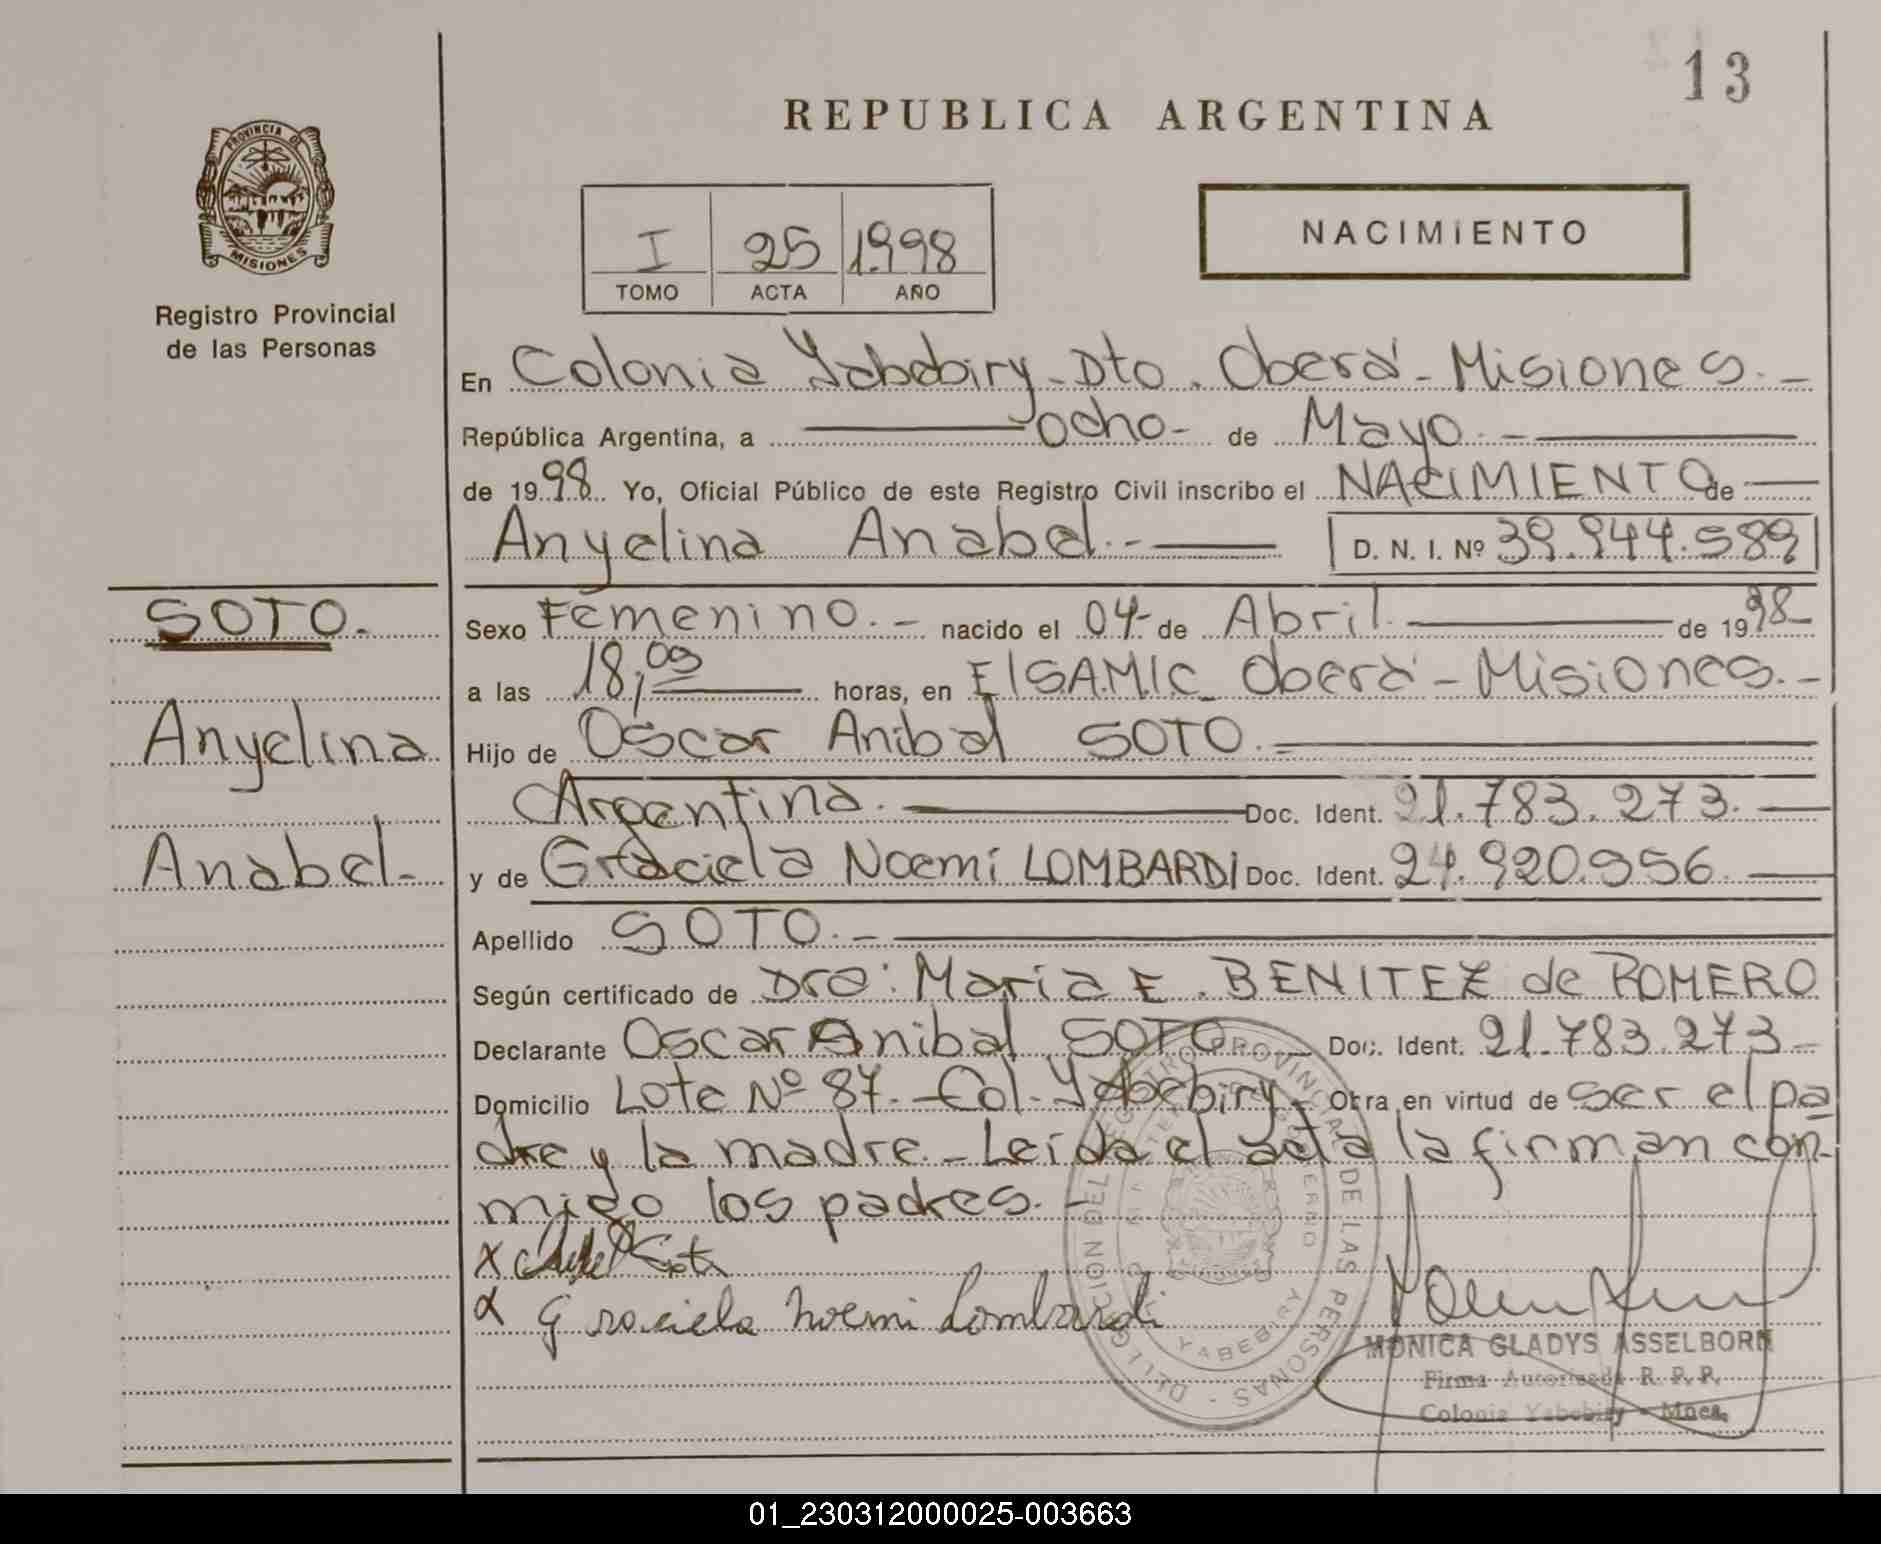 13
REPUBLICA ARGENTINA
PROVINCIA DE
MISIONES
Registro Provincial
de las Personas
I 25 1.998
TOMO ACTA AÑO
NACIMIENTO
En Colonia Yabebiry - Dto. Oberá - Misiones. -
República Argentina, a ocho - de Mayo. -
de 1998. Yo, Oficial Público de este Registro Civil inscribo el NACIMIENTO de
Anyelina Anabel. - D. N. I. Nº 39.944.589
SOTO.
Anyelina
Anabel -
Sexo Femenino. - nacido el 04 - de Abril. de 1998 -
a las 18,09 horas, en El S.A.M.I.C. Oberá - Misiones. -
Hijo de Oscar Anibal SOTO. =
Argentina. Doc. Ident. 21.783.273.
y de Graciela Noemí LOMBARDI Doc. Ident. 24.920.956.
Apellido SOTO. -
Según certificado de Dra: María E. BENITEZ de ROMERO
Declarante Oscar Anibal SOTO - Doc. Ident. 21.783.273 -
Domicilio Lote Nº 87. - Col. Yabebiry - Obra en virtud de ser el pa
dre y la madre. - Leída el acta la firman con-
migo los padres. -
x Soto
x Graciela Noemi Lombardi.
DELEGACION DEL REGISTRO PROVINCIAL DE LAS PERSONAS -
YABEBIRY
MONICA GLADYS ASSELBORN
Firma Autorizada R. P. P.
Colonia Yabebiry - Mnes.
01_230312000025-003663